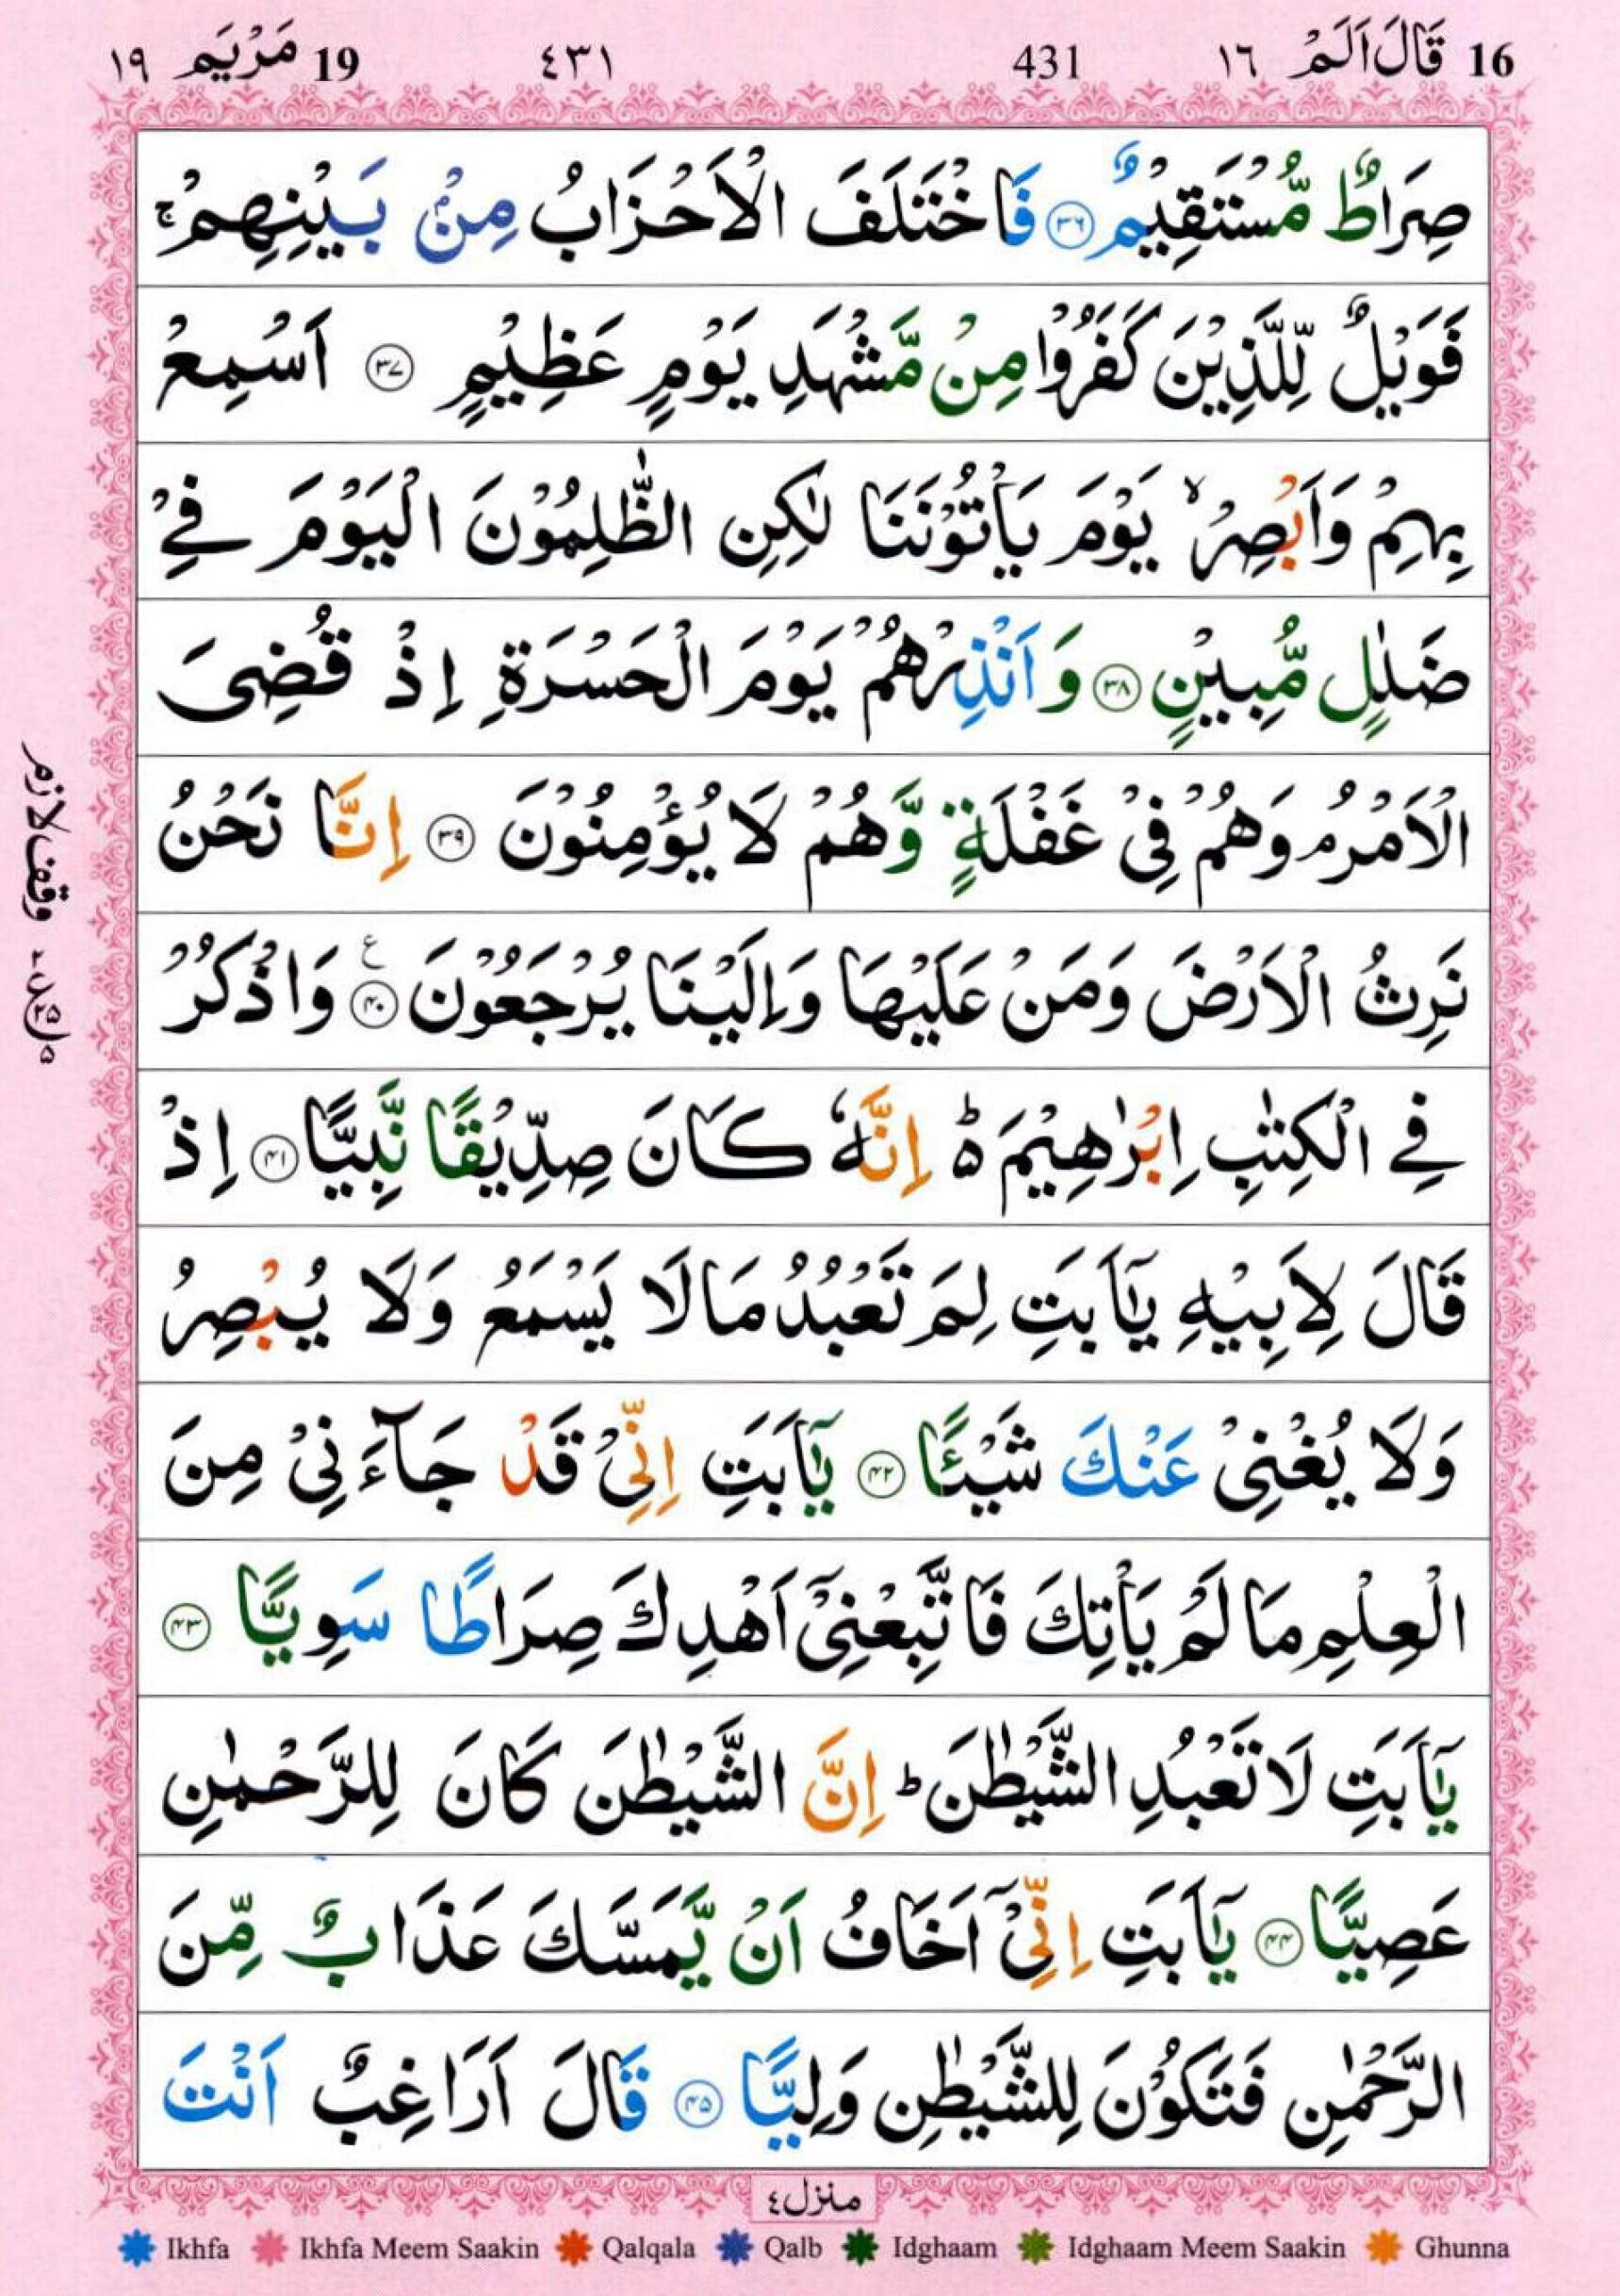 16 قَالَ اَلَمْ ١٦ 431 ٤٣١ 19 مَرْيَم ١٩
صِرَاطٌ مُّسْتَقِيْمٌ ۝۳۶ فَاخْتَلَفَ الْاَحْزَابُ مِنْۢ بَيْنِهِمْ ۚ
فَوَيْلٌ لِّلَّذِيْنَ كَفَرُوْا مِنْ مَّشْهَدِ يَوْمٍ عَظِيْمٍ ۝۳۷ اَسْمِعْ
بِهِمْ وَاَبْصِرْ ۙ يَوْمَ يَاْتُوْنَنَا لٰكِنِ الظّٰلِمُوْنَ الْيَوْمَ فِيْ
ضَلٰلٍ مُّبِيْنٍ ۝۳۸ وَاَنْذِرْهُمْ يَوْمَ الْحَسْرَةِ اِذْ قُضِيَ
الْاَمْرُ ۘ وَهُمْ فِيْ غَفْلَةٍ وَّهُمْ لَا يُؤْمِنُوْنَ ۝۳۹ اِنَّا نَحْنُ
نَرِثُ الْاَرْضَ وَمَنْ عَلَيْهَا وَاِلَيْنَا يُرْجَعُوْنَ ۝۴۰ ع وَاذْكُرْ
فِي الْكِتٰبِ اِبْرٰهِيْمَ ؕ۬ اِنَّهٗ كَانَ صِدِّيْقًا نَّبِيًّا ۝۴۱ اِذْ
قَالَ لِاَبِيْهِ يٰۤاَبَتِ لِمَ تَعْبُدُ مَا لَا يَسْمَعُ وَلَا يُبْصِرُ
وَلَا يُغْنِيْ عَنْكَ شَيْـًٔا ۝۴۲ يٰۤاَبَتِ اِنِّيْ قَدْ جَآءَنِيْ مِنَ
الْعِلْمِ مَا لَمْ يَاْتِكَ فَاتَّبِعْنِيْۤ اَهْدِكَ صِرَاطًا سَوِيًّا ۝۴۳
يٰۤاَبَتِ لَا تَعْبُدِ الشَّيْطٰنَ ؕ اِنَّ الشَّيْطٰنَ كَانَ لِلرَّحْمٰنِ
عَصِيًّا ۝۴۴ يٰۤاَبَتِ اِنِّيْۤ اَخَافُ اَنْ يَّمَسَّكَ عَذَابٌ مِّنَ
الرَّحْمٰنِ فَتَكُوْنَ لِلشَّيْطٰنِ وَلِيًّا ۝۴۵ قَالَ اَرَاغِبٌ اَنْتَ
وقف لازم
منزل ٤
Ikhfa Ikhfa Meem Saakin Qalqala Qalb Idghaam Idghaam Meem Saakin Ghunna